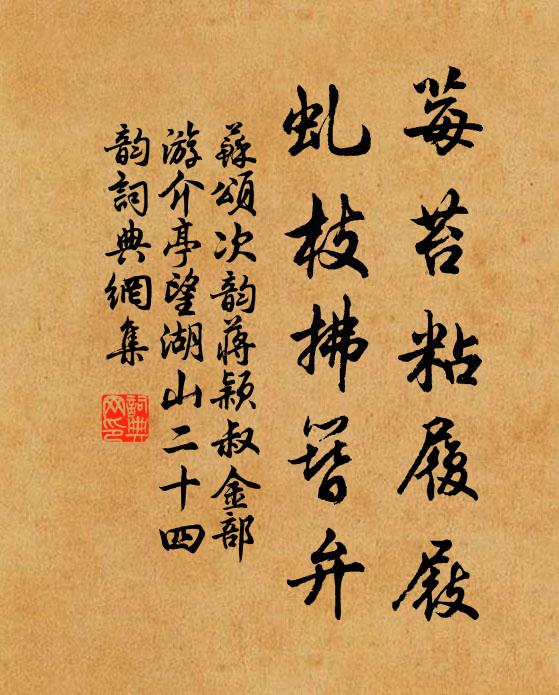 莓苔粘履屐
虬枝拂簪弁
蘇頌次韵蔣颖叔金部
游介亭望湖山二十四
韵詞典網集
詞典网印